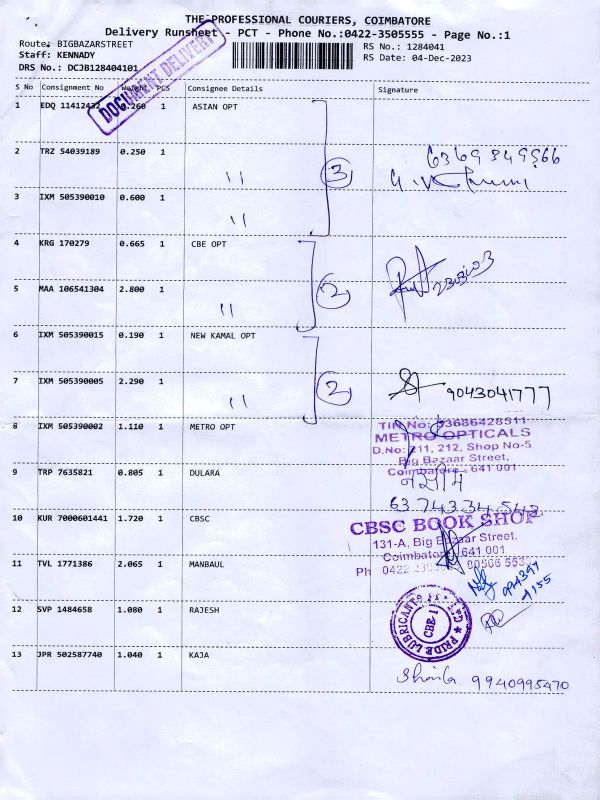 THE PROFESSIONAL COURIERS, COIMBATORE
Delivery Runsheet - PCT - Phone No.:0422-3505555 - Page No.:1
Route: BIGBAZARSTREET
Staff: KENNADY
DRS No.: DCJB128404101
RS No.: 1284041
RS Date: 04-Dec-2023
DOCUMENT DELIVERY
S No Consignment No Weight PCS Consignee Details Signature
1 EDQ 11412432 0.260 1 ASIAN OPT
2 TRZ 54039189 0.250 1 〃
3
6369849566
3 IXM 505390010 0.600 1 〃
4 KRG 170279 0.665 1 CBE OPT
2
5 MAA 106541304 2.800 1 〃
6 IXM 505390015 0.190 1 NEW KAMAL OPT
7 IXM 505390005 2.290 1 〃
2
9043041777
8 IXM 505390002 1.110 1 METRO OPT
TIN No: 33686428511
METRO OPTICALS
D.No: 211, 212, Shop No-5
Big Bazaar Street,
Coimbatore - 641 001
9 TRP 7635821 0.805 1 DULARA
नसीम
10 KUR 7000601441 1.720 1 CBSC
CBSC BOOK SHOP
131-A, Big Bazaar Street,
Coimbatore 641 001
Ph 0422
11 TVL 1771386 2.065 1 MANBAUL
12 SVP 1484658 1.080 1 RAJESH
PRIDE LUBRICANTS LTD
CBE-1
13 JPR 502587740 1.040 1 KAJA
9940995470